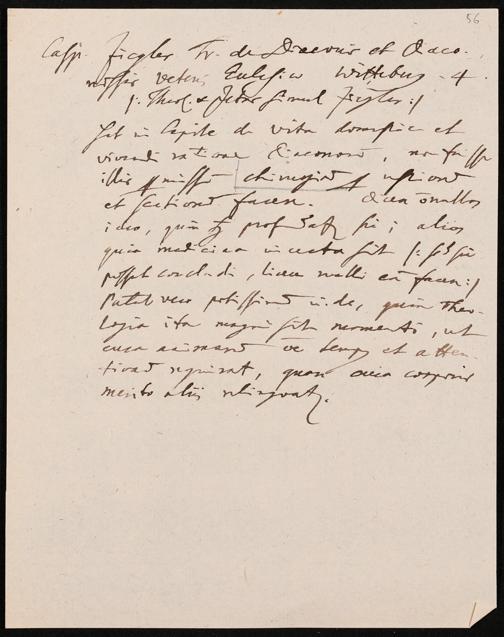 56
Casp. Ziegler Tr. de Diaconis et Diaco-
nissis veteris Ecclesiae Witteberg. 4.
/: Theol. & Jctus simul Ziegler :/
Sit in Capite de vita domestica et
vivendi ratione Diaconorum, non fuisse
illis permissum chirurgiam
et sectionem facere. Dicit nonnullos
quia; alios
quia medicina incerta sit /:
posset concludi, licere nulli eam facere :/
Putat vero potissimum inde, quia Theo-
logia ita magni sit momenti, ut
cura animarum omne tempus et atten-
tionem requirat, quare cura corporis
merito aliis relinquatur.